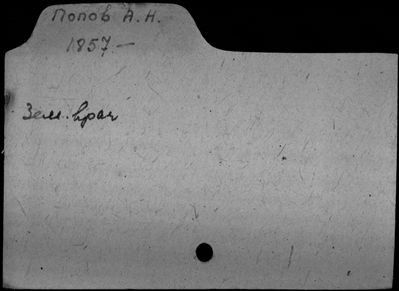 Попов А. Н.
1857 —
Зем. врач